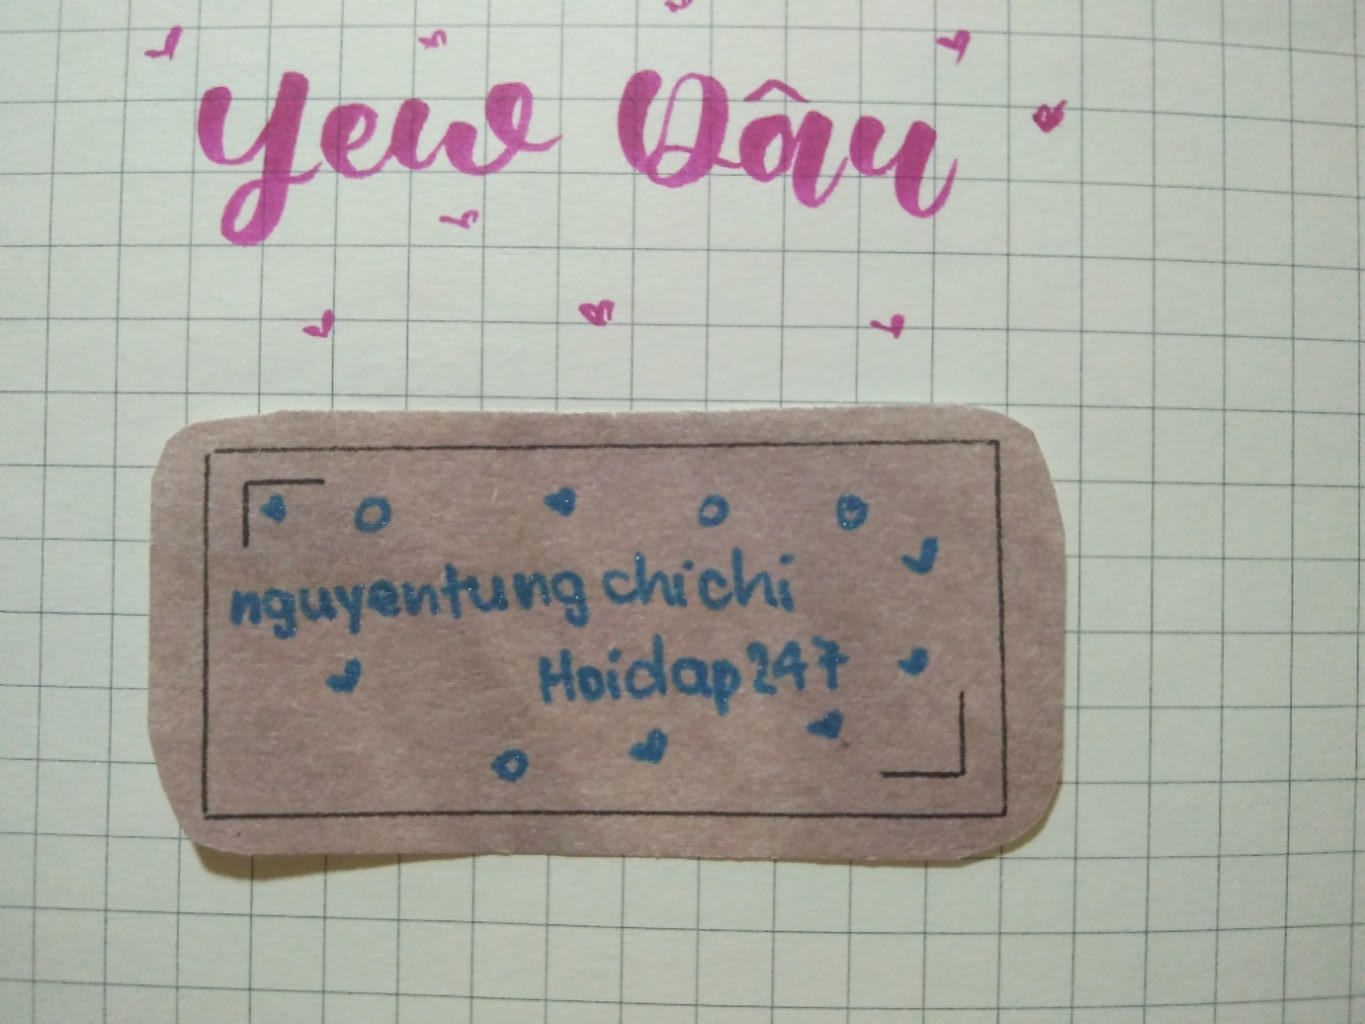 Yew Dâu
nguyentung chichi
Hoidap247